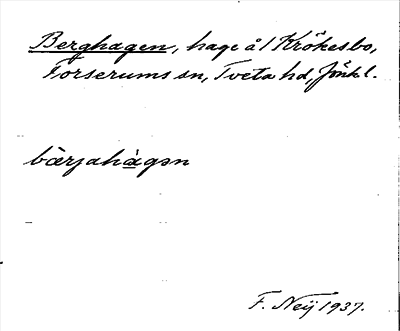 Berghagen, hage å 1 Krökesbo,
Forserums sn, Tveta hd, Jönk l.
bæ̀rjahàgən
F. Neij 1937.